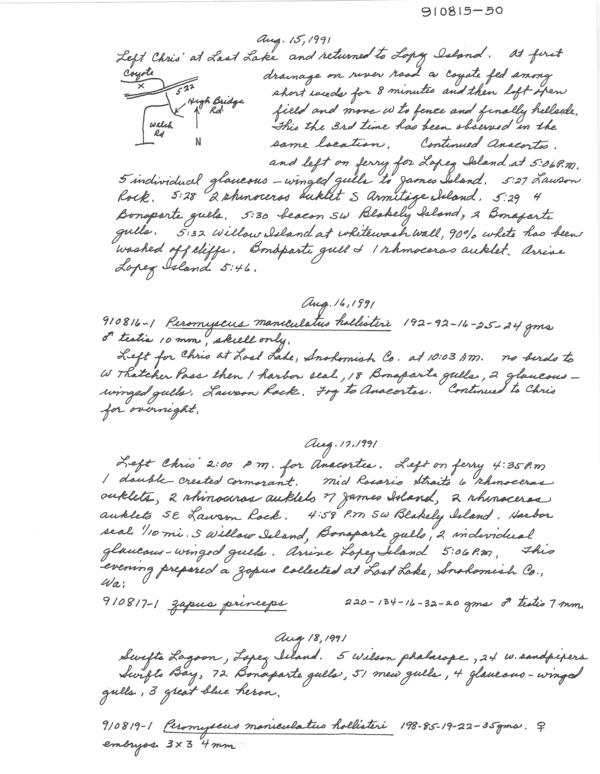 910815-50
Aug. 15, 1991
Left Chris' at Lost Lake and returned to Lopez Island. At first
drainage on river road a coyote fed among
short weeds for 8 minutes and then left open
field and move W to fence and finally hillside.
This the 3rd time has been observed in the
same location. Continued Anacortes.
and left on ferry for Lopez Island at 5:06 P.m.
Coyote
X
522
High Bridge
Rd
Welch
Rd
N
5 individual glaucous-winged gulls to James Island. 5:27 Lawson
Rock. 5:28 2 rhinoceros auklet S Armitage Island. 5:29 4
Bonaparte gulls. 5:30 beacon SW Blakely Island, 2 Bonaparte
gulls. 5:32 Willow Island at whitewash wall, 90% white has been
washed off cliffs. Bonaparte gull & 1 rhinoceros auklet. Arrive
Lopez Island 5:46.
Aug. 16, 1991
910816-1 Peromyscus maniculatus hollisteri 192-92-16-25-24 gms
♂ testis 10 mm, skull only.
Left for Chris at Lost Lake, Snohomish Co. at 10:03 AM. no birds to
W Thatcher Pass then 1 harbor seal, 18 Bonaparte gulls, 2 glaucous-
winged gulls. Lawson Rock. Fog to Anacortes. Continued to Chris
for overnight.
Aug. 17, 1991
Left Chris' 2:00 P.m. for Anacortes. Left on ferry 4:35 P.m
1 double crested cormorant. mid Rosario Straits 6 rhinoceros
auklets, 2 rhinoceros auklets N James Island, 2 rhinoceros
auklets SE Lawson Rock. 4:58 P.m SW Blakely Island. Harbor
seal 1/10 mi. S Willow Island, Bonaparte gulls, 2 individual
glaucous-winged gulls. Arrive Lopez Island 5:06 P.m. This
evening prepared a zapus collected at Lost Lake, Snohomish Co.,
Wa:
910817-1 zapus princeps 220-134-16-32-20 gms ♂ testis 7 mm.
Aug 18, 1991
Swifts Lagoon, Lopez Island. 5 Wilson phalarope, 24 w. sandpipers
Swifts Bay, 72 Bonaparte gulls, 51 mew gulls, 4 glaucous-winged
gulls, 3 great blue heron.
910819-1 Peromyscus maniculatus hollisteri 198-85-19-22-35 gms. ♀
embryos 3x3 4mm